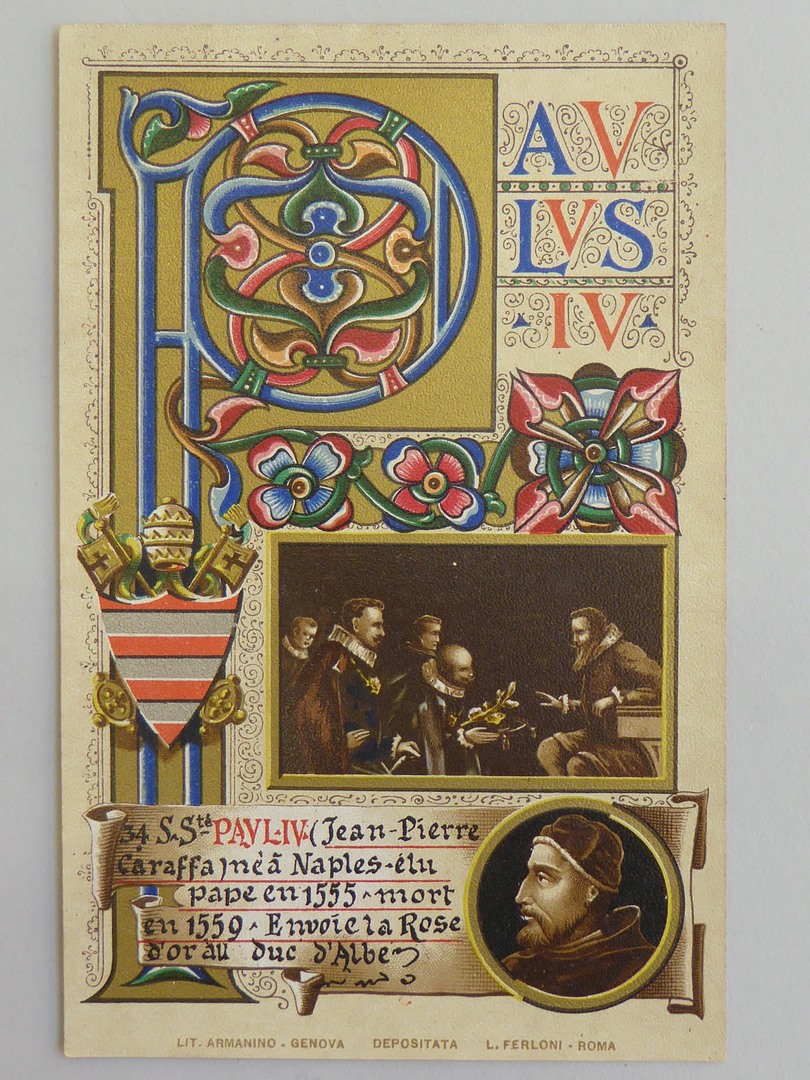 PAV
LVS
IV
34 S. Sté PAVL·IV·(Jean-Pierre
Caraffa) né à Naples-élu
pape en 1555 - mort
en 1559 - Envoie la Rose
d'or au duc d'Albe
LIT. ARMANINO - GENOVA DEPOSITATA L. FERLONI - ROMA